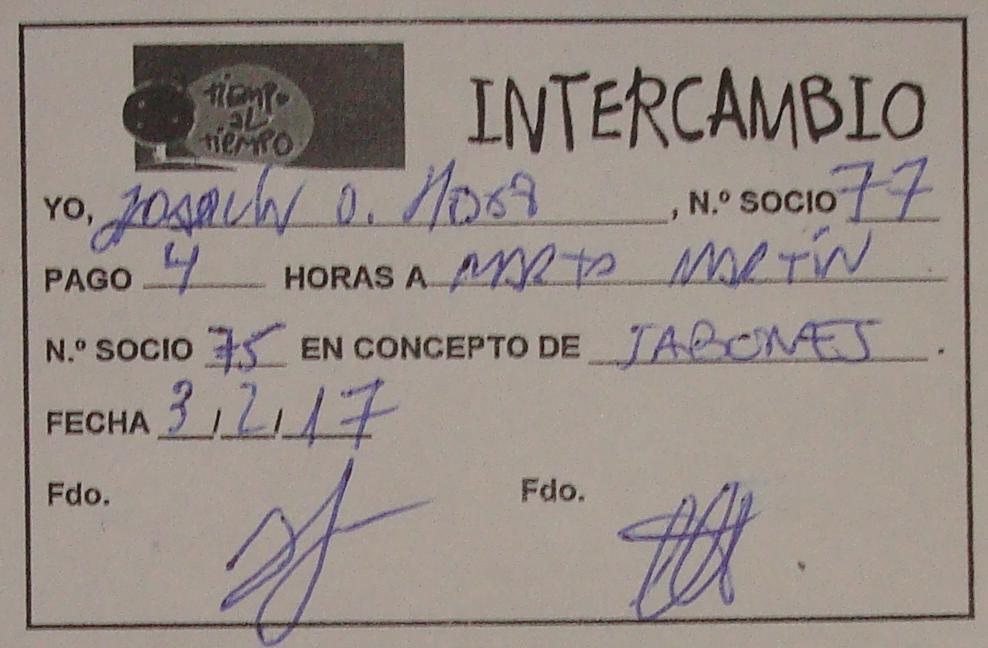 tiempo
al
tiempo
INTERCAMBIO
YO, O. Mora, N.º SOCIO 77
PAGO 4 HORAS A MARTA MARTÍN
N.º SOCIO 75 EN CONCEPTO DE JABONES.
FECHA 3/2/17
Fdo. Fdo.